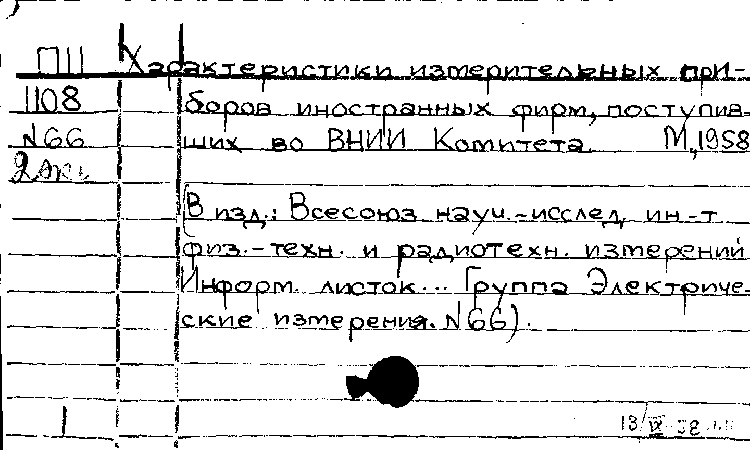 П11 Характеристики измерительных при-
1108 боров иностранных фирм, поступив-
N66 ших во ВНИИ Комитета. М, 1958
2 экз
(В изд.: Всесоюз науч.-исслед, ин.-т
физ.-техн. и радиотехн. измерений
Информ. листок... Группа Электриче-
ские измерения. N66).
1